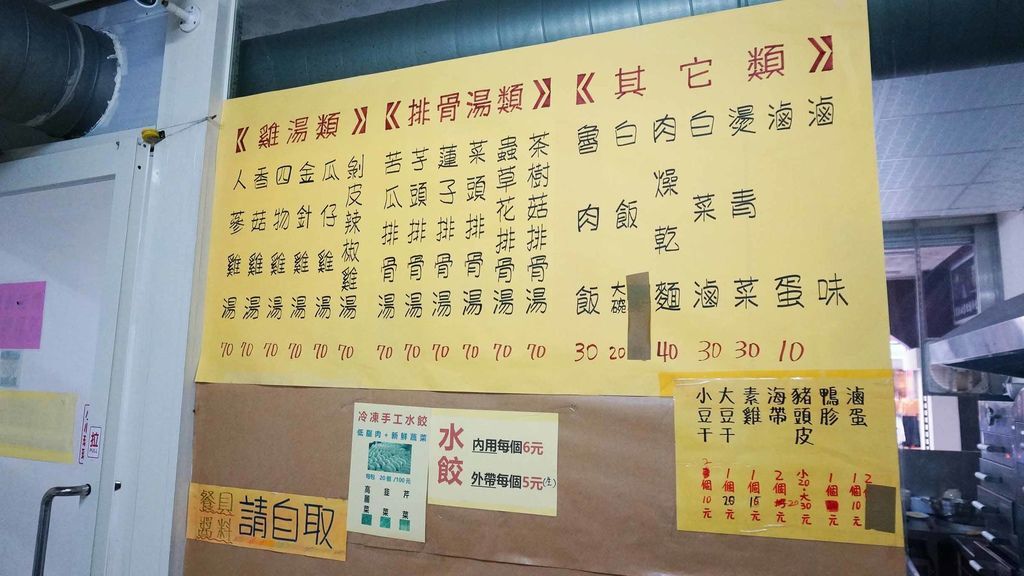 《雞湯類》
人蔘雞湯 70
香菇雞湯 70
四物雞湯 70
金針雞湯 70
瓜仔雞湯 70
剝皮辣椒雞湯 70
《排骨湯類》
苦瓜排骨湯 70
芋頭排骨湯 70
蓮子排骨湯 70
菜頭排骨湯 70
蟲草花排骨湯 70
茶樹菇排骨湯 70
《其它類》
魯肉飯 30
白飯 大碗 20
肉燥乾麵 40
白菜滷 30
燙青菜 30
滷蛋 10
滷味
冷凍手工水餃
低脂肉+新鮮蔬菜
每包 20個/100元
高麗菜
韭菜
芹菜
水餃
內用每個6元
外帶每個5元(生)
餐具
醬料
請自取
小豆干 2個10元
大豆干 1個
素雞 1個 元
海帶 2個 元
豬頭皮 小20 大30元
鴨胗 1個 元
滷蛋 1個10元
拉
PULL